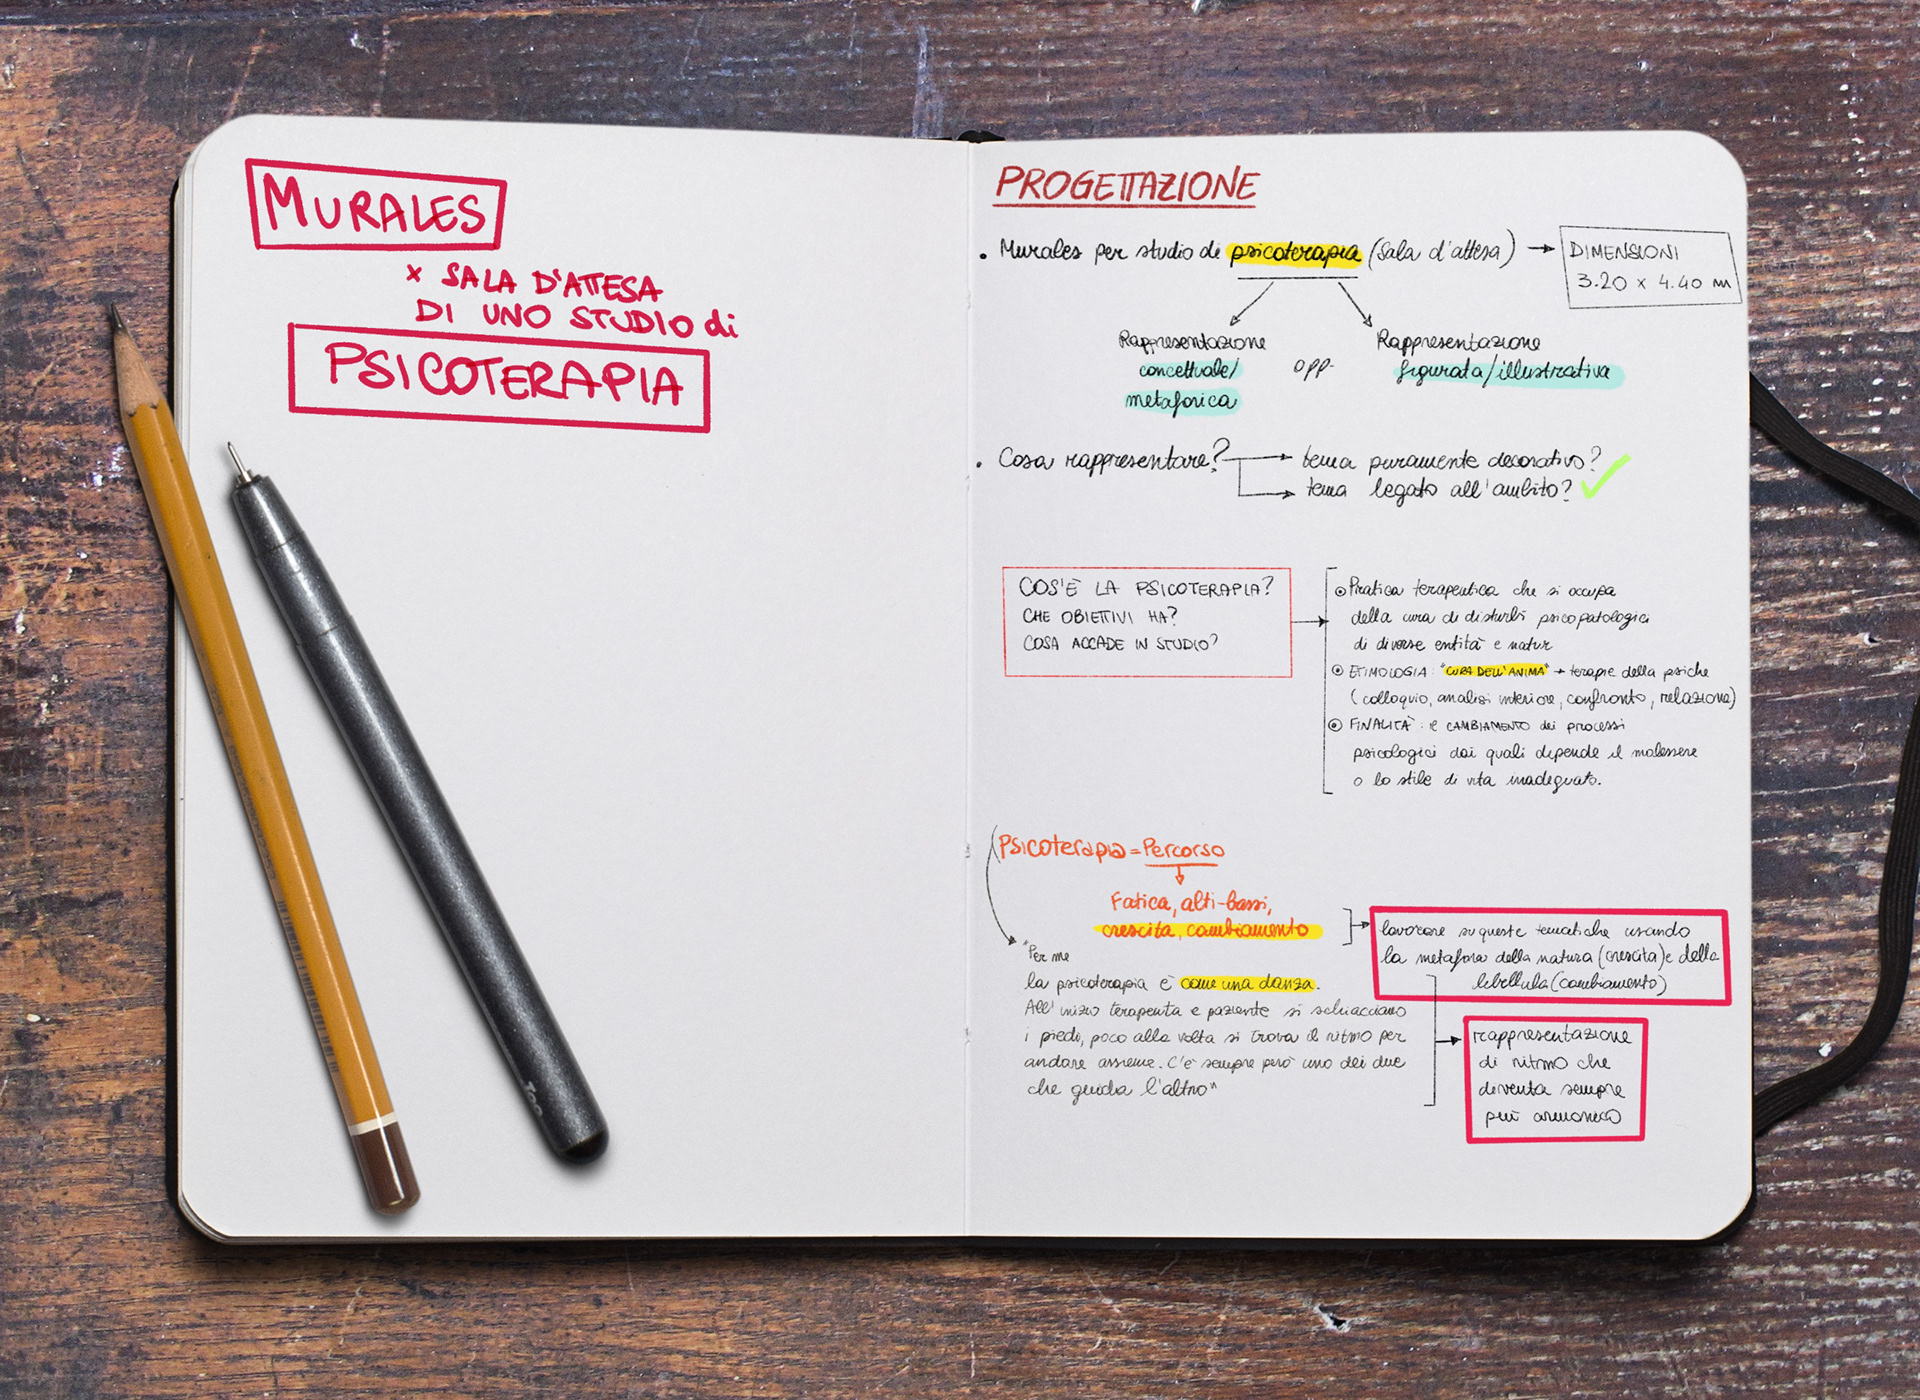 MURALES
x SALA D'ATTESA
DI UNO STUDIO di
PSICOTERAPIA
PROGETTAZIONE
• Murales per studio di psicoterapia (sala d'attesa) → DIMENSIONI
3.20 x 4.40 m
Rappresentazione
concettuale/
metaforica
opp.
Rappresentazione
figurata/illustrativa
• Cosa rappresentare? → tema puramente decorativo?
→ tema legato all'ambito? ✓
COS'È LA PSICOTERAPIA?
CHE OBIETTIVI HA?
COSA ACCADE IN STUDIO?
Pratica terapeutica che si occupa
della cura di disturbi psicopatologici
di diverse entità e natur
ETIMOLOGIA: "CURA DELL'ANIMA" → terapie della psiche
(colloquio, analisi interiore, confronto, relazione)
FINALITÀ: il CAMBIAMENTO dei processi
psicologici dai quali dipende il malessere
o lo stile di vita inadeguato.
Psicoterapia = Percorso
Fatica, alti-bassi,
crescita, cambiamento
lavorare su queste tematiche usando
la metafora della natura (crescita) e della
libellula (cambiamento)
"Per me
la psicoterapia è come una danza.
All'inizio terapeuta e paziente si schiacciano
i piedi, poco alla volta si trova il ritmo per
andare assieme. C'è sempre però uno dei due
che guida l'altro"
rappresentazione
di ritmo che
diventa sempre
più armonico